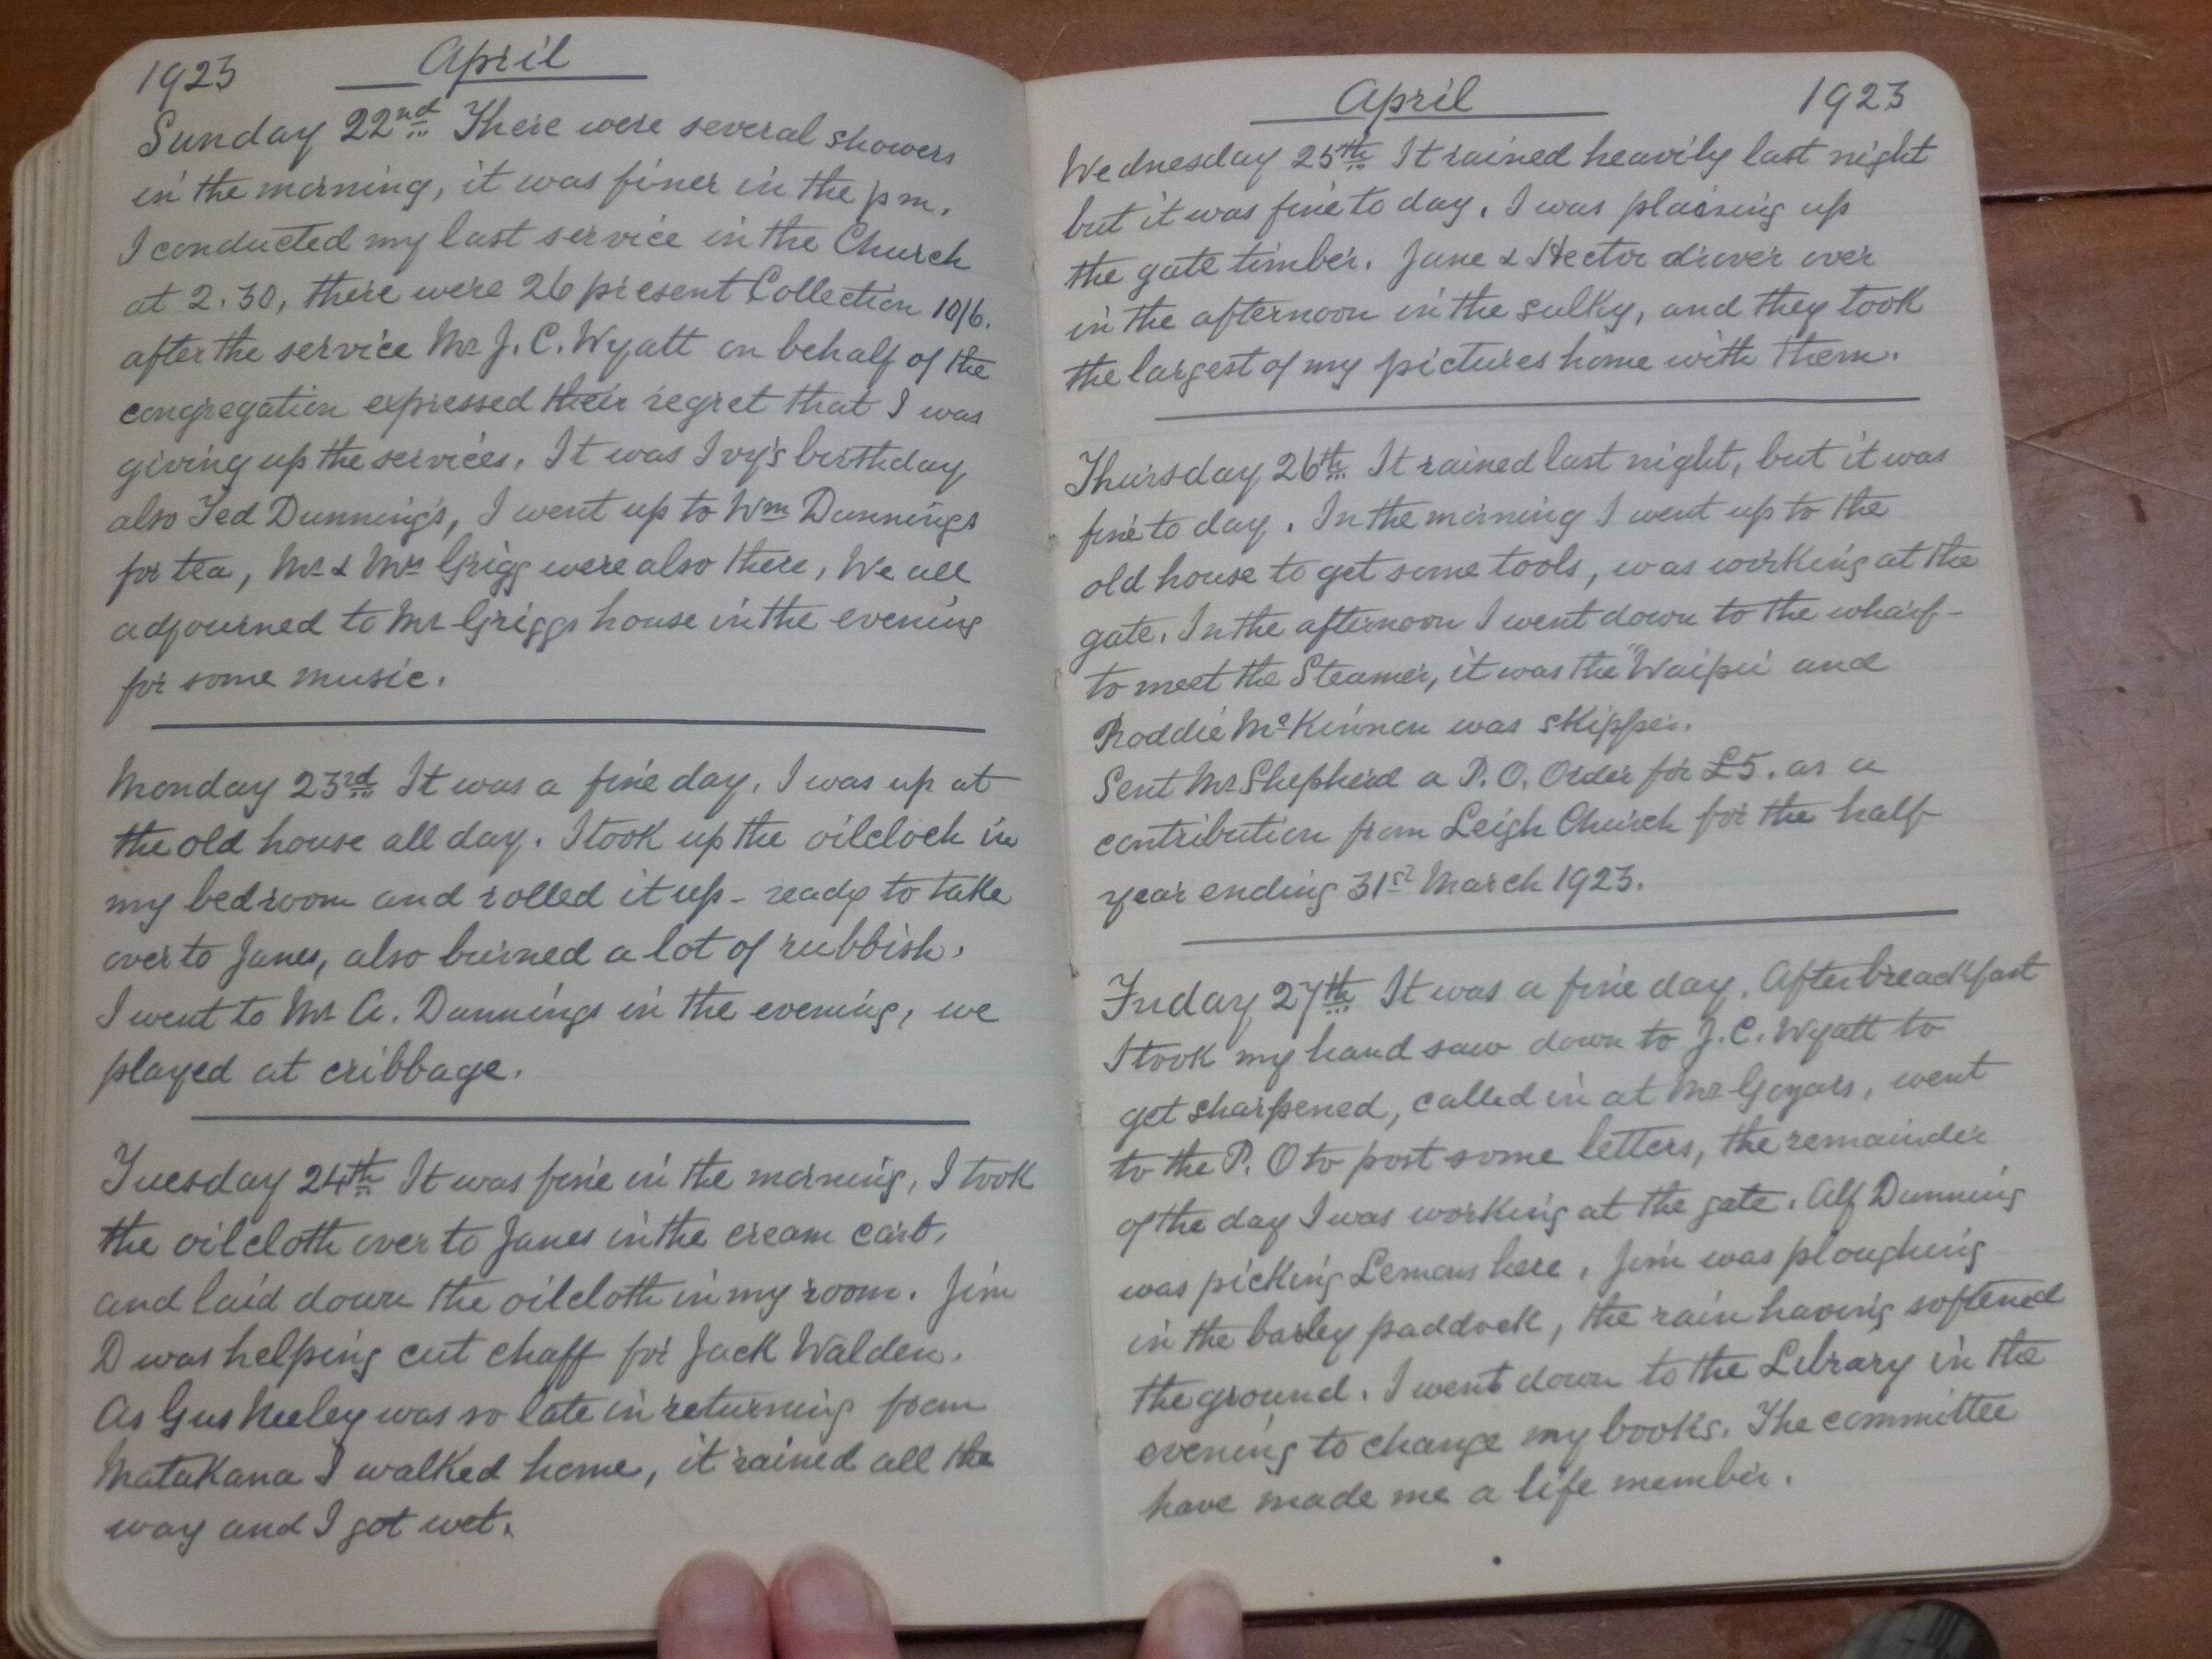 1923 April
Sunday 22nd There were several showers
in the morning, it was finer in the pm.
I conducted my last service in the Church
at 2.30, there were 26 present Collection 10/6.
after the service Mr J. C. Wyatt on behalf of the
congregation expressed their regret that I was
giving up the services. It was Ivy's birthday
also Ted Dunning's, I went up to Wm Dunnings
for tea, Mr & Mrs Grigg were also there, We all
adjourned to Mr Griggs house in the evening
for some music.
Monday 23rd It was a fine day. I was up at
the old house all day. I took up the oilcloth in
my bedroom and rolled it up - ready to take
over to Janes, also burned a lot of rubbish.
I went to Mr A. Dunnings in the evening, we
played at cribbage.
Tuesday 24th It was fine in the morning, I took
the oilcloth over to Janes in the cream cart,
and laid down the oilcloth in my room. Jim
D was helping cut chaff for Jack Walden.
As Gus Neeley was so late in returning from
Matakana I walked home, it rained all the
way and I got wet.
April 1923
Wednesday 25th It rained heavily last night
but it was fine to day. I was plaining up
the gate timber. Jane & Hector drover over
in the afternoon in the sulky, and they took
the largest of my pictures home with them.
Thursday 26th It rained last night, but it was
fine to day. In the morning I went up to the
old house to get some tools, was working at the
gate. In the afternoon I went down to the wharf-
to meet the Steamer, it was the "Waipu" and
Roddie McKinnon was skipper.
Sent Mr Shepherd a P.O. Order for £5. as a
contribution from Leigh Church for the half
year ending 31st March 1923.
Friday 27th It was a fine day. After breackfast
I took my hand saw down to J. C. Wyatt to
get sharpened, called in at Mr Gozars, went
to the P. O to post some letters, the remainder
of the day I was working at the gate. Alf Dunning
was picking Lemons here, Jim was ploughing
in the barley paddock, the rain having softened
the ground. I went down to the Library in the
evening to change my books. The committee
have made me a life member.